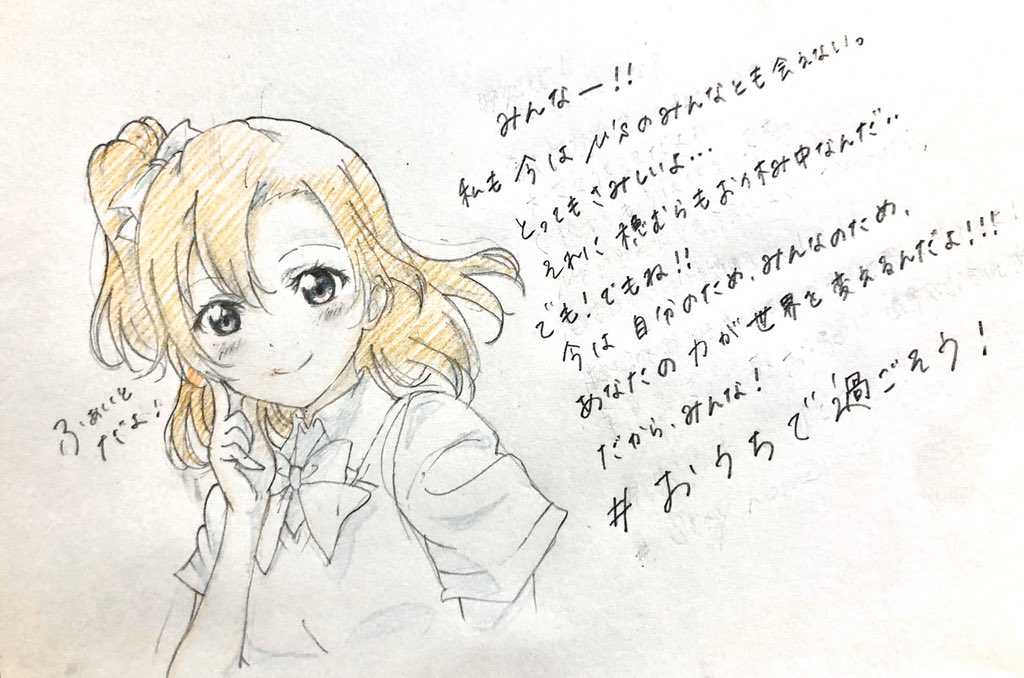 みんなー!!
私も今はμ'sのみんなとも会えない。
とってもさみしいよ…
それに穂むらもお休み中なんだ..
でも!でもね!!
今は自分のため、みんなのため、
あなたの力が世界を変えるんだよ!!!
だから、みんな!
#おうちで過ごそう!
ふぁいと
だよ!